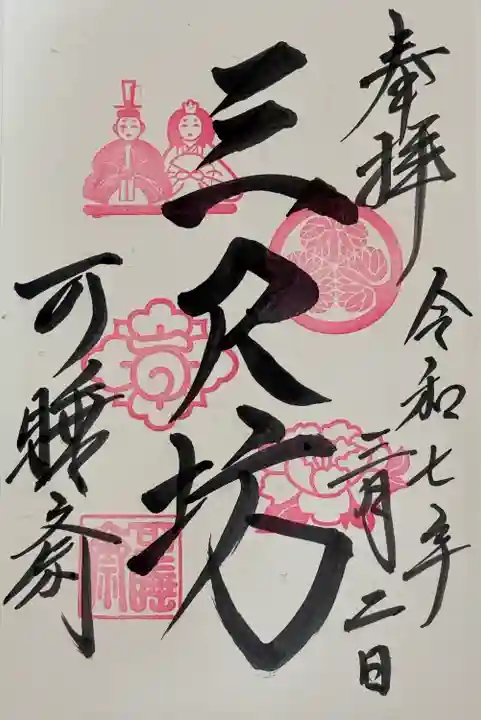 奉拝
令和七年
三月二日
三尺坊
可睡斎